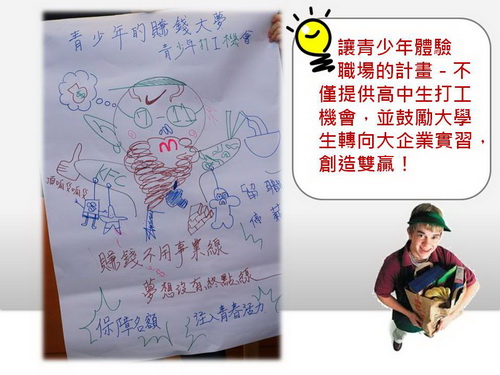 青少年的賺錢大夢
青少年打工機會
KFC
賺錢不用事業線
夢想沒有終點線
保障名額
注入青春活力
讓青少年體驗
職場的計畫－不
僅提供高中生打工
機會，並鼓勵大學
生轉向大企業實習，
創造雙贏！